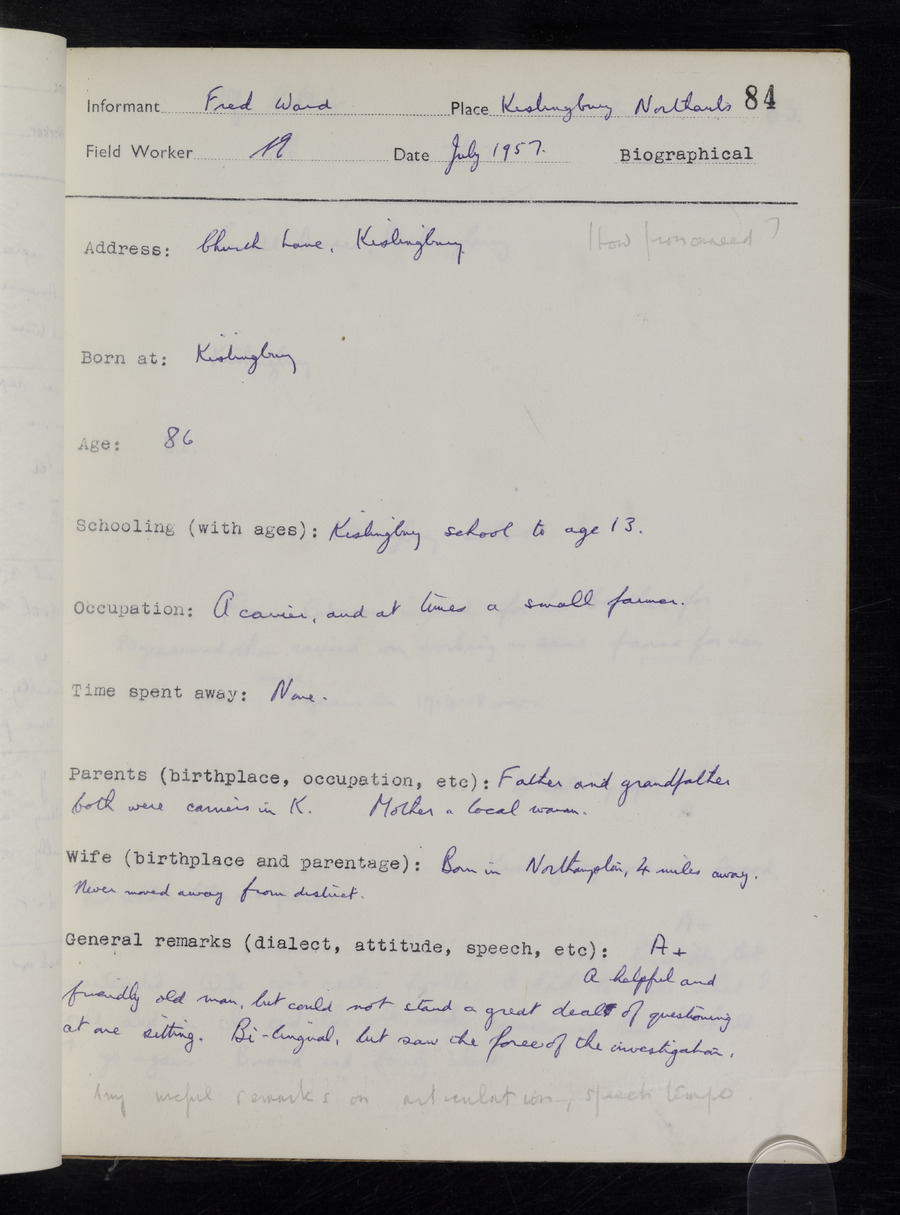 Informant Fred Ward Place Kislingbury Northants 84
Field Worker Date July 1957. Biographical
Address: Church Lane, Kislingbury. How pronounced?
Born at: Kislingbury
Age: 86
Schooling (with ages): Kislingbury school to age 13.
Occupation: A carrier, and at times a small farmer.
Time spent away: None.
Parents (birthplace, occupation, etc): Father and grandfather
both were carriers in K. Mother a local woman.
Wife (birthplace and parentage): Born in Northampton, 4 miles away.
Never moved away from district.
General remarks (dialect, attitude, speech, etc): A+
A helpful and
friendly old man, but could not stand a great deal of questioning
at one sitting. Bi-lingual, but saw the force of the investigation.
Any useful remarks on articulation, speech tempo.